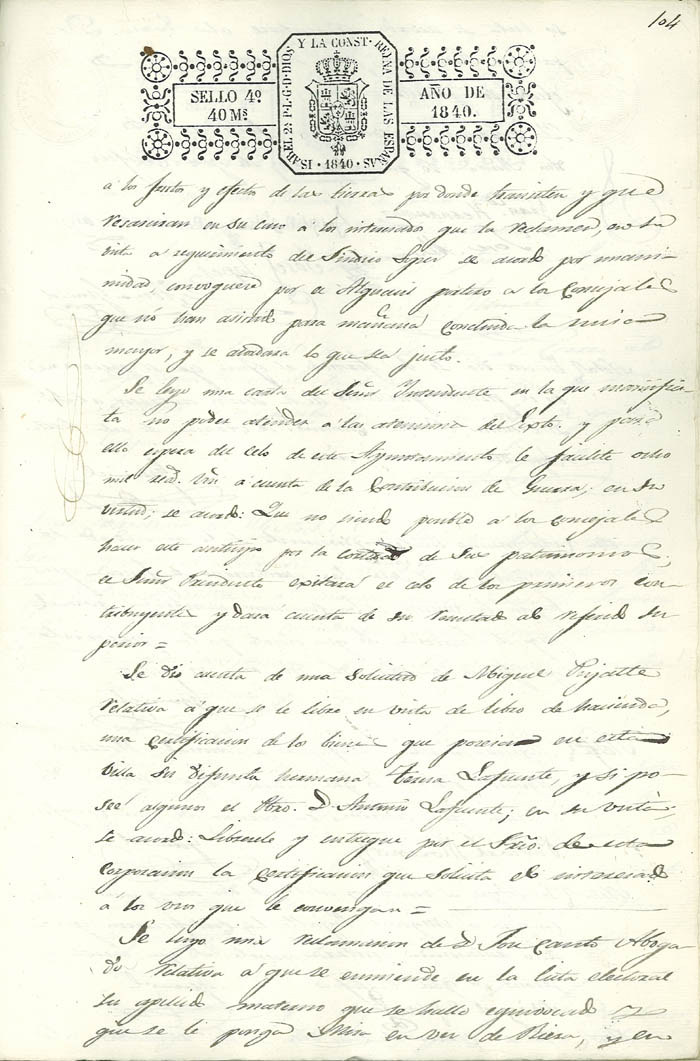 104
ISABEL 2ª P.L.G.D.DIOS Y LA CONST. REYNA DE LAS ESPAÑAS
SELLO 4º
40 Mˢ
AÑO DE
1840.
· 1840 ·
á los frutos y efectos de las tierras por donde transiten y que
resarciran en su caso a los interesados que la reclamen, en
vista a requirimiento del Sindico se acordo por unani-
midad, convoquese por el Alguacil portero a los Concejales
que nó han asistido para mañana concluida la misa
mayor, y se acordara lo que sea justo.
Se leyo una carta del Señor Yntendente en la que manifies-
ta no poder atender a las atenciones del Exto. y para
ello espera del celo de este Ayuntamiento le facilite ocho
mil rea.ˢ Vn á cuenta de la Contribucion de Guerra; en su
virtud; se acordo: Que no siendo posible a los concejales
hacer este anticipo por la de sus patrimonios,
el Señor Presidente exitará el celo de los primeros con-
tribuyentes y dará cuenta de su resultado al referido Su-
perior =
Se dió cuenta de una solicitud de Miguel
relativa á que se le libre en vista de libro de hacienda,
una certificacion de los bienes que poseia en esta
villa su difunta hermana Teresa Lafuente, y si po-
seé algunos el Pbro. D. Antonio Lafuente; en su vista,
se acordo: Librese y entregue por el Srio. de esta
corporacion la certificacion que solicita el interesado
á los usos que le convengan =
Se leyo una reclamacion de D. José Cantó Aboga-
do relativa á que se enmiende en la lista electoral
su apellido materno que se halla equivocado y
que se le ponga Mira en vez de Riera, y en